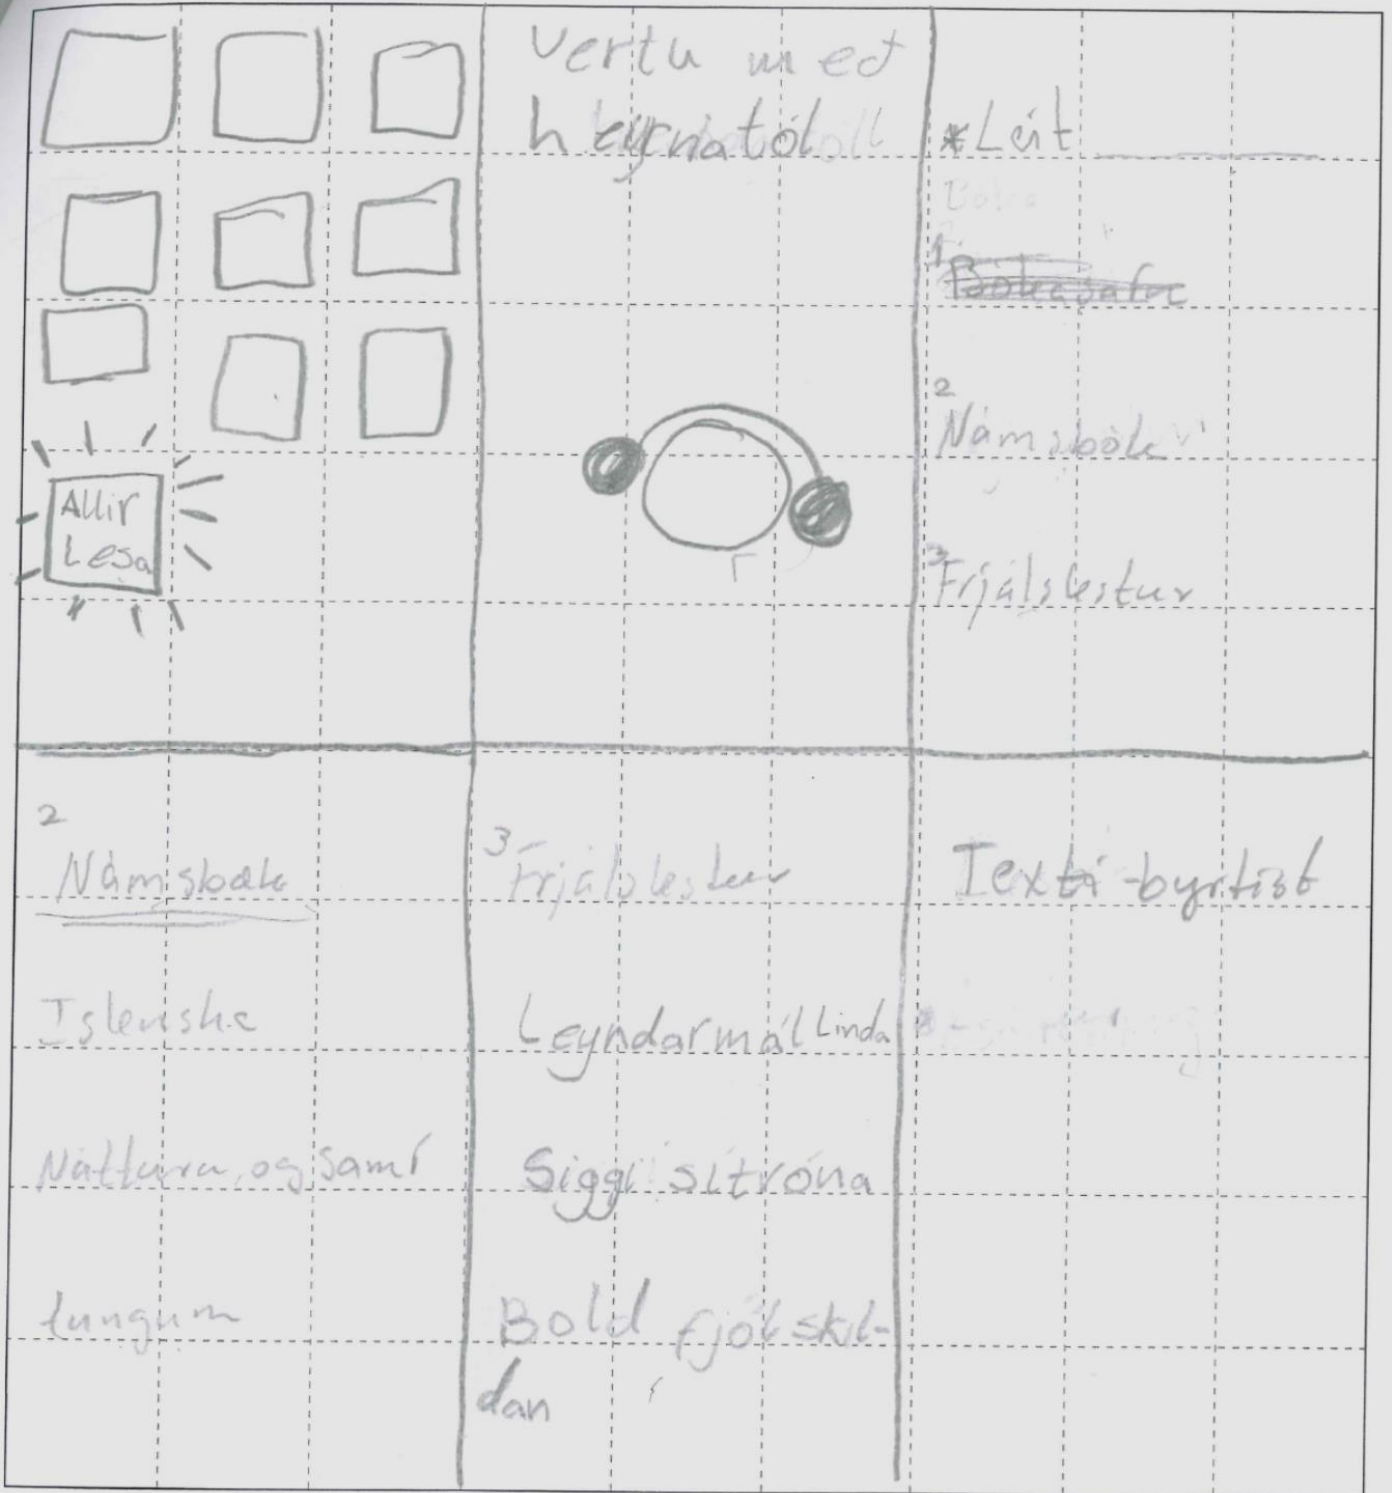 Vertu með
heyrnatól
Allir
Lesa
*Leit
2
Námsbók
3
Frjálslestur
2
Námsbæk
Islenska
Náttúra og samf
tungum
3
Frjálslestur
Leyndarmál Linda
Siggi sítróna
Bold fjölskil-
dan
Texti -byrtist